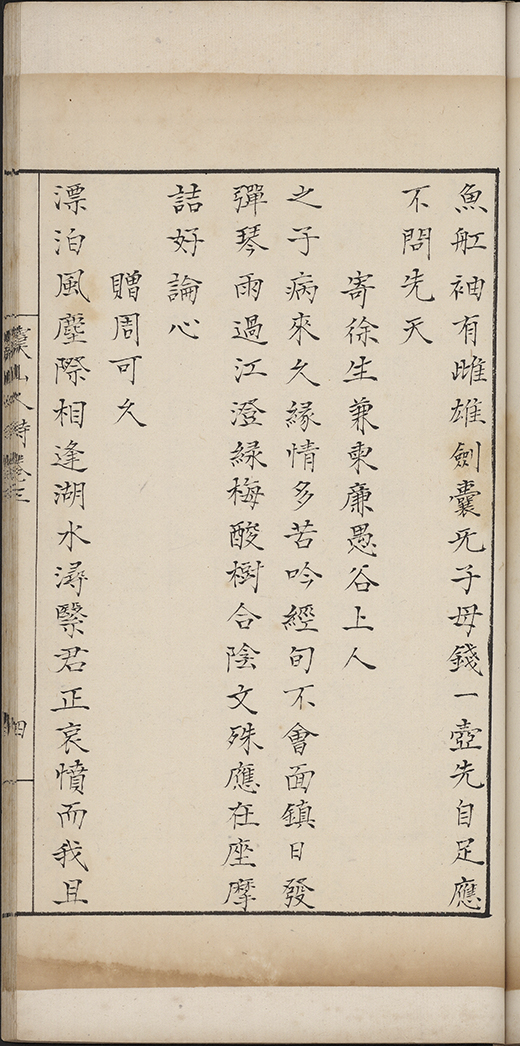 魚舡袖有雌雄劍囊无子母錢一壺先自足應
不問先天
寄徐生兼柬廉愚谷上人
之子病來久緣情多苦吟經旬不會面鎮日發
彈琴雨過江澄綠梅酸樹合陰文殊應在座摩
詰好論心
贈周可久
漂泊風塵際相逢湖水潯繄君正哀憤而我且
山人詩卷三
四